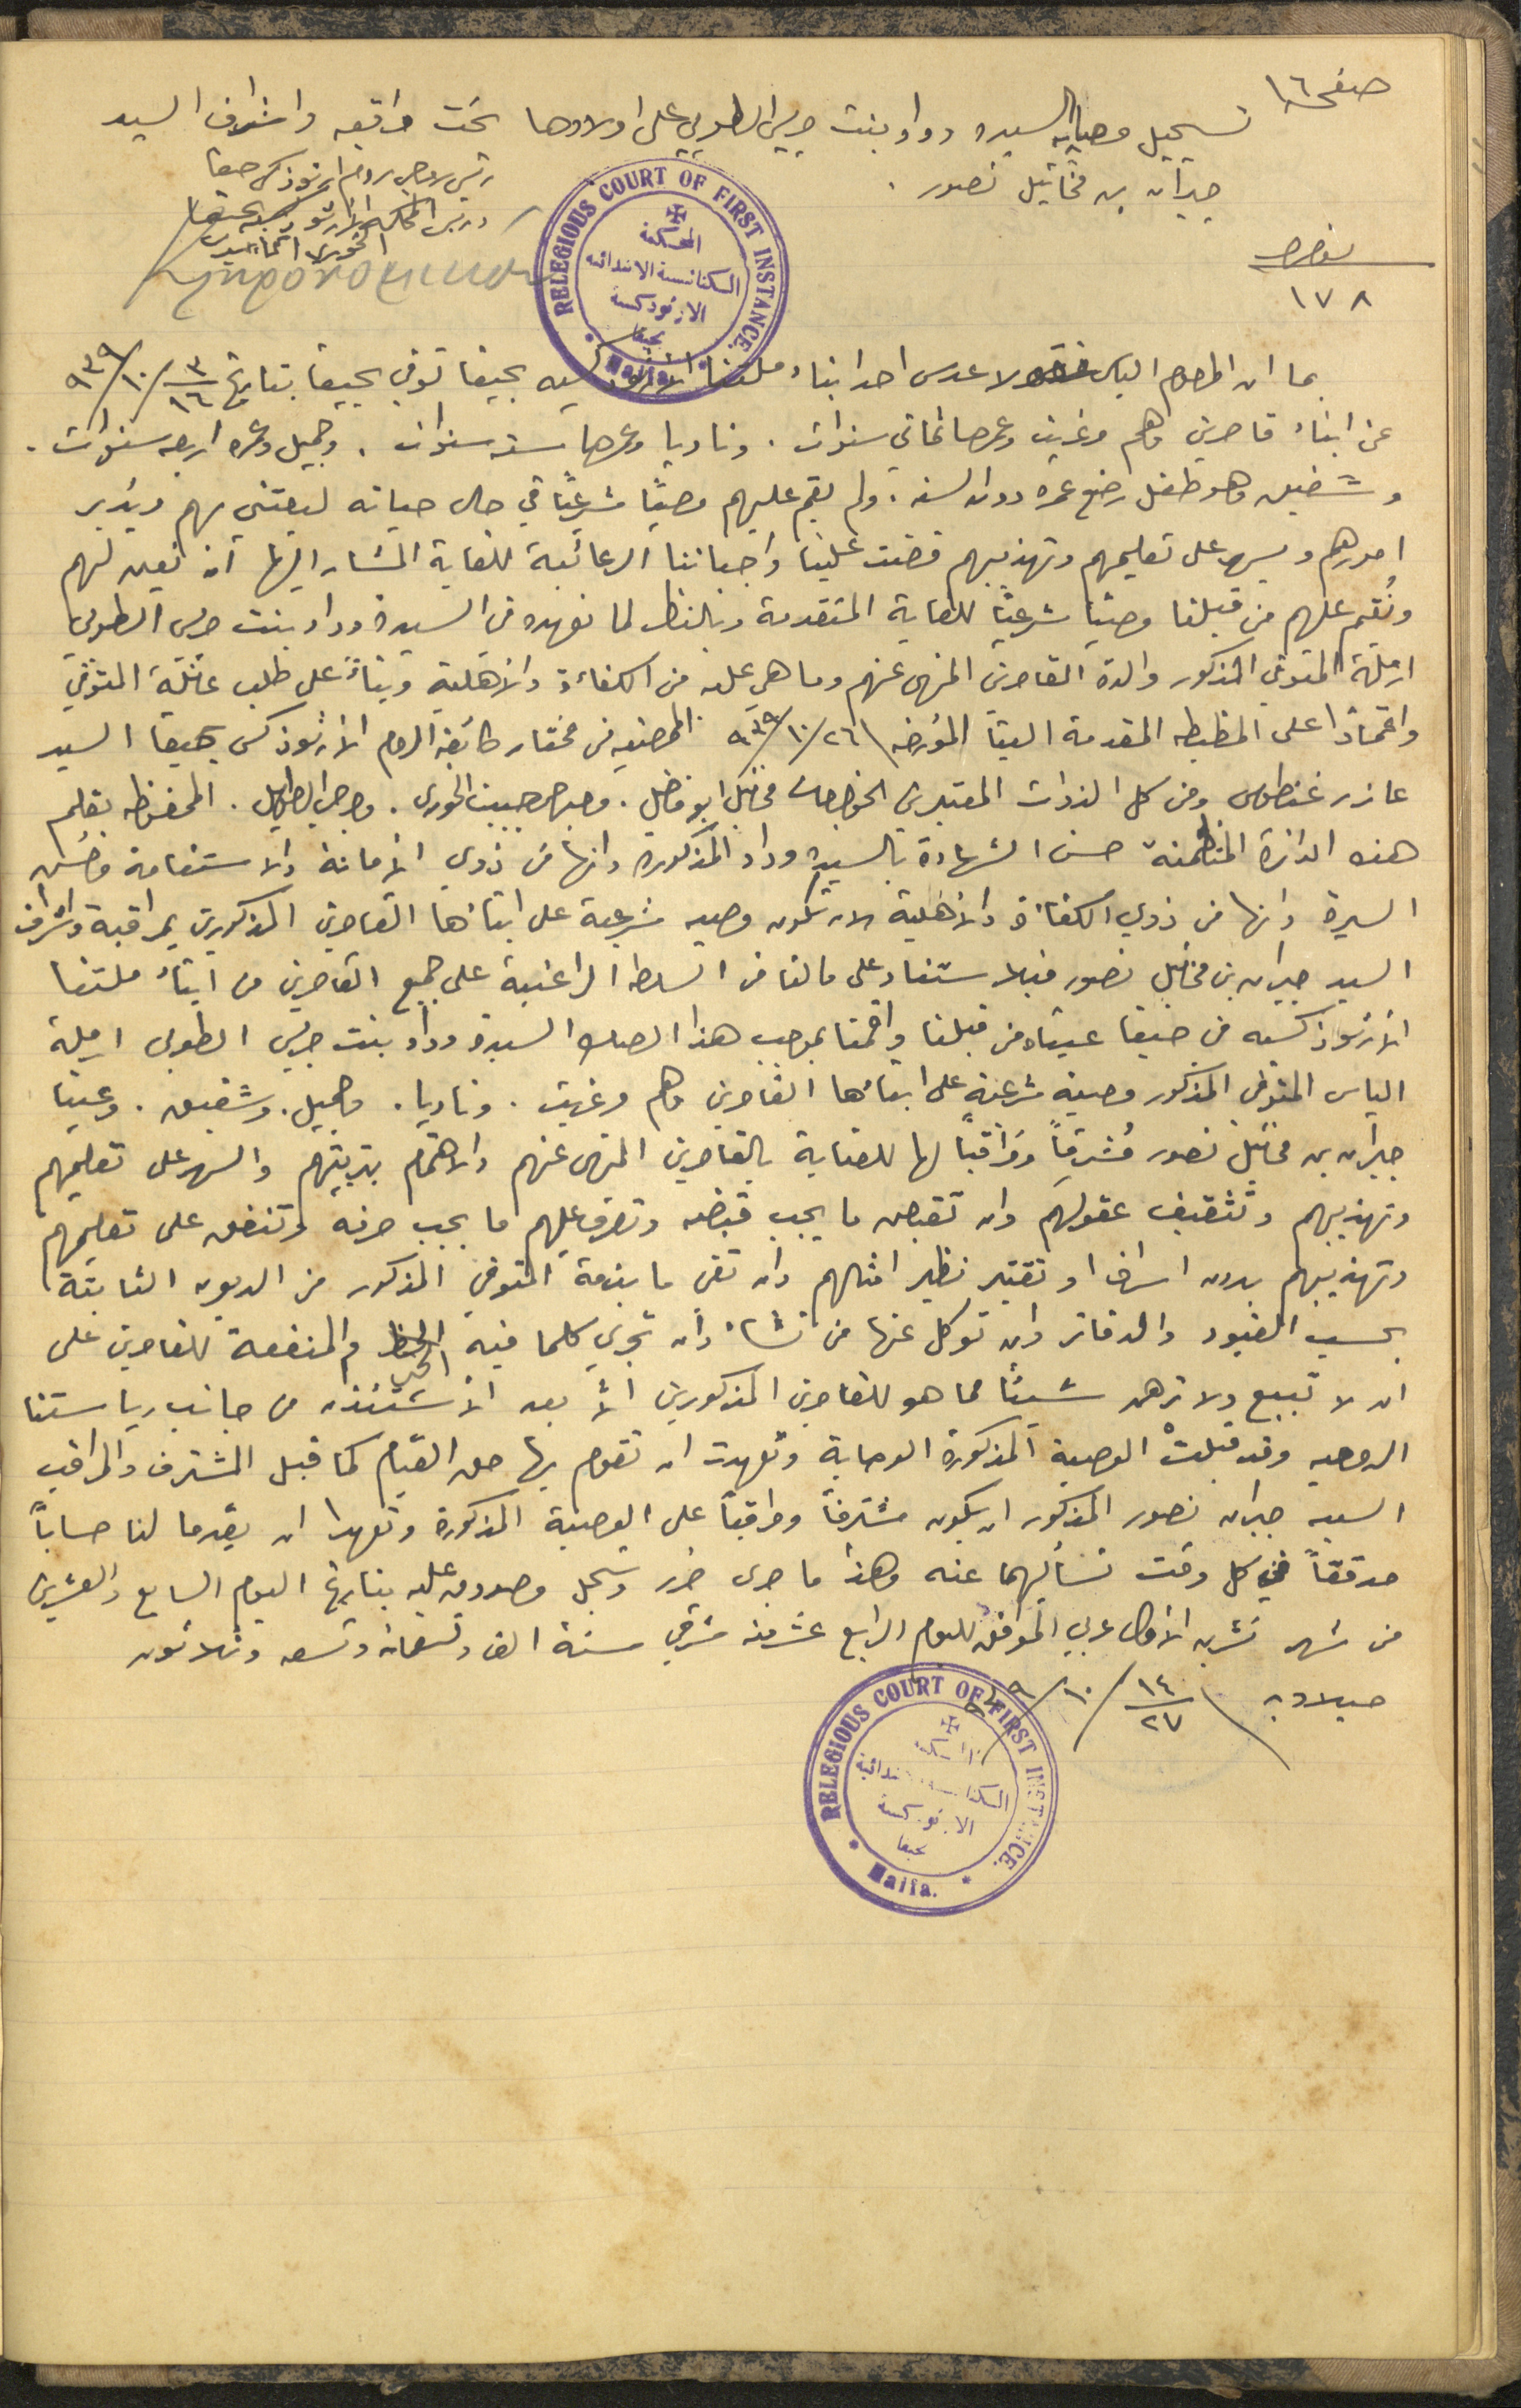 صفحة ١٦
تسجيل وصاية السيده وداد بنت جريس الطوبي على اولادها تحت مراقبة واشراف السيد
جبران بن مخائيل نصور .
رئيس روحي روم ارثوذكس حيفا
ورئيس المحكمة الارثوذكسية بحيفا
الخوري
RELEGIOUS COURT OF FIRST INSTANCE.
المحكمة
الكنائسية الابتدائيه
الارثوذكسية
بحيفا
Haifa.
نمره
١٧٨
بما ان المرحوم الياس نقولا عدس احد ابناء ملتنا الارثوذكسيه بحيفا توفي بحيفا بتاريخ ٣/١٦ /١٠/ ٩٣٩
عن ابناء قاصرين وهم مرغريت وعمرها ثماني سنوات . وناديا وعمرها سته سنوات . وجميل وعمره اربعه سنوات .
وشفيق وهو طفل رضيع عمره دون السنه . ولم يقم عليهم وصيًا شرعيًا في حال حياته ليعتني بهم ويدبر
امورهم ويسهر على تعليمهم وتهذيبهم قضت علينا واجباتنا الرعائية للغاية المشار اليها أن نعين لهم
ونُقيم عليهم من قبلنا وصيًا شرعيًا للغاية المتقدمة وبالنظر لما نعهده في السيدة وداد بنت جريس الطوبي
ارملة المتوفي المذكور والدة القاصرين المنهى عنهم وما هي عليه من الكفاءة والأهلية وبناءً على طلب عائلة المتوفي
واعتمادًا على المضبطه المقدمة الينا المؤرخه ٢٦/١٠/٩٣٩ الممضيه من مختار طائفة الروم الأرثوذكس بحيفا السيد
عازر غنطوس ومن كل الذوات المعتبرين الخواجات مخائيل ابو فاضل . وجريس حبيب الخوري . وجرجي الطويل . المحفوظه بقلم
هذه الدائرة المتضمنة حسن الشهادة بالسيدة وداد المذكورة وانها من ذوي الأمانة والاستقامة وحُسن
السيرة وانها من ذوي الكفاءة والأهلية لان تكون وصيه شرعية على ابنائها القاصرين المذكورين بمراقبة واشراف
السيد جبران بن مخائيل نصور فبالاستناد على مالنا من السلطة الراعية على جميع القاصرين من ابناء ملتنا
الأرثوذكسيه في حيفا عيناه من قبلنا واقمنا بموجب هذا الصك السيدة وداد بنت جريس الطوبي ارملة
الياس المتوفى المذكور وصية شرعية على ابنائها القاصرين وهم مرغريت . وناديا . وجميل . وشفيق . وعينا
جبران بن مخائيل نصور مُشرفاً ومراقباً لها للعناية بالقاصرين المنهى عنهم والاهتمام بتربيتهم والسهر على تعليمهم
وتهذيبهم وتثقيف عقولهم وان تقبض ما يجب قبضه وتصرف عليهم ما يجب صرفه وتنفق على تعليمهم
وتهذيبهم بدون اسراف او تقتير نظير امثالهم وان تفي ما بذمة المتوفي المذكور من الديون الثابتة
بحسب القيود والدفاتر وان توكل عنها من تشاء وأن تجري كلما فيه الحظ والمنفعة للقاصرين على
ان لا تبيع ولا ترهن شيئًا مما هو للقاصرين المذكورين الّا بعد الأستئذان من جانب رياستنا
الروحيه وقد قبلتْ الوصية المذكورة الوصاية وتعهدت ان تقوم بها حق القيام كما قبل المشرف والمراقب
السيد جبران نصور المذكور ان يكون مشرفاً ومراقباً على الوصية المذكورة وتعهدا ان يقدما لنا حساباً
مدققاً في كل وقت نسألهما عنه وهذا ما جرى حرر وسجل وصودق عليه بتاريخ اليوم السابع والعشرين
من شهر تشرين الأول غربي الموافق لليوم الرابع عشر منه شرقي سنة الف وتسعمائة وتسعه وثلاثون
ميلاديه ١٤/٢٧ /١٠/ ٩٣٩
RELEGIOUS COURT OF FIRST INSTANCE.
الكنائسية الابتدائية
الارثوذكسية
بحيفا
Haifa.